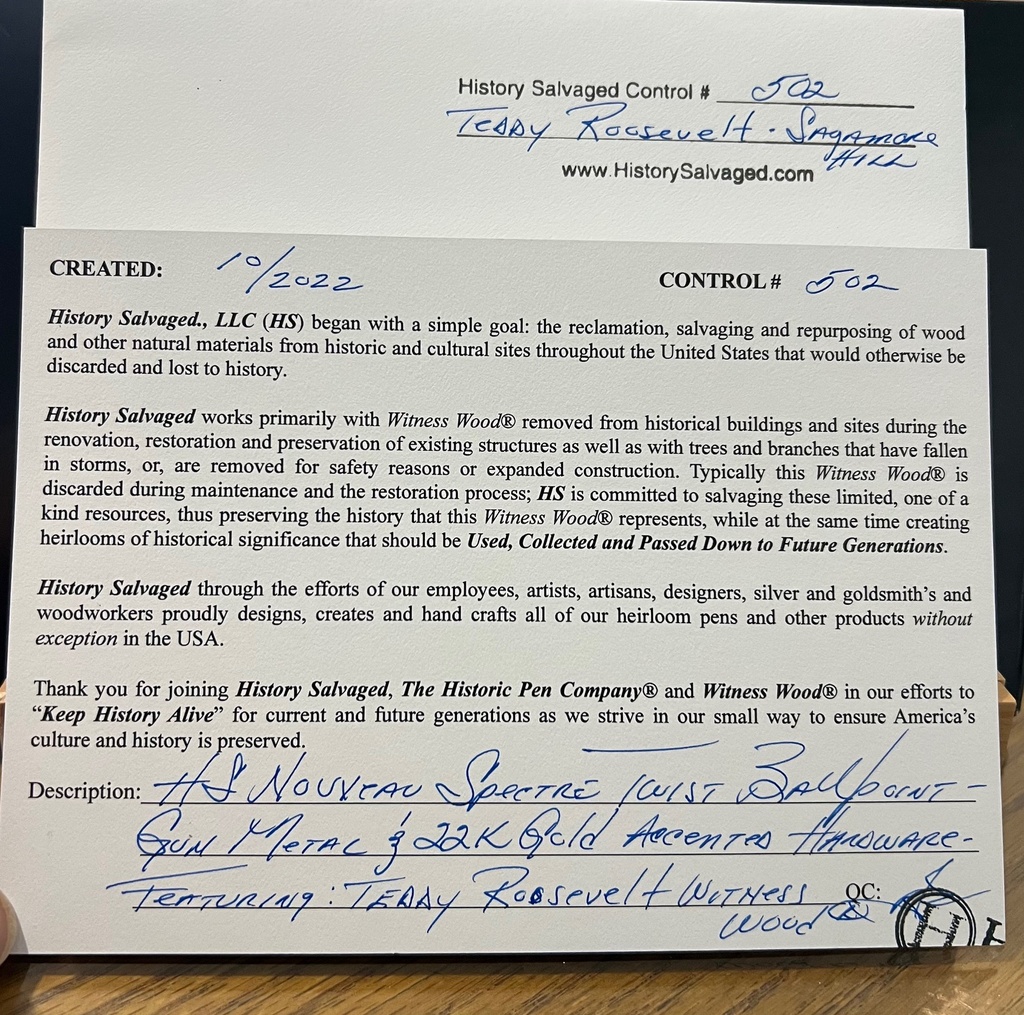 History Salvaged Control # 502
Teddy Roosevelt - Sagamore
Hill
www.HistorySalvaged.com
CREATED: 10/2022 CONTROL# 502
History Salvaged., LLC (HS) began with a simple goal: the reclamation, salvaging and repurposing of wood
and other natural materials from historic and cultural sites throughout the United States that would otherwise be
discarded and lost to history.
History Salvaged works primarily with Witness Wood® removed from historical buildings and sites during the
renovation, restoration and preservation of existing structures as well as with trees and branches that have fallen
in storms, or, are removed for safety reasons or expanded construction. Typically this Witness Wood® is
discarded during maintenance and the restoration process; HS is committed to salvaging these limited, one of a
kind resources, thus preserving the history that this Witness Wood® represents, while at the same time creating
heirlooms of historical significance that should be Used, Collected and Passed Down to Future Generations.
History Salvaged through the efforts of our employees, artists, artisans, designers, silver and goldsmith's and
woodworkers proudly designs, creates and hand crafts all of our heirloom pens and other products without
exception in the USA.
Thank you for joining History Salvaged, The Historic Pen Company® and Witness Wood® in our efforts to
“Keep History Alive” for current and future generations as we strive in our small way to ensure America's
culture and history is preserved.
Description: HS Nouveau Spectre Twist Ballpoint -
Gun Metal & 22K Gold Accented Hardware -
Featuring: Teddy Roosevelt Witness
Wood® QC: